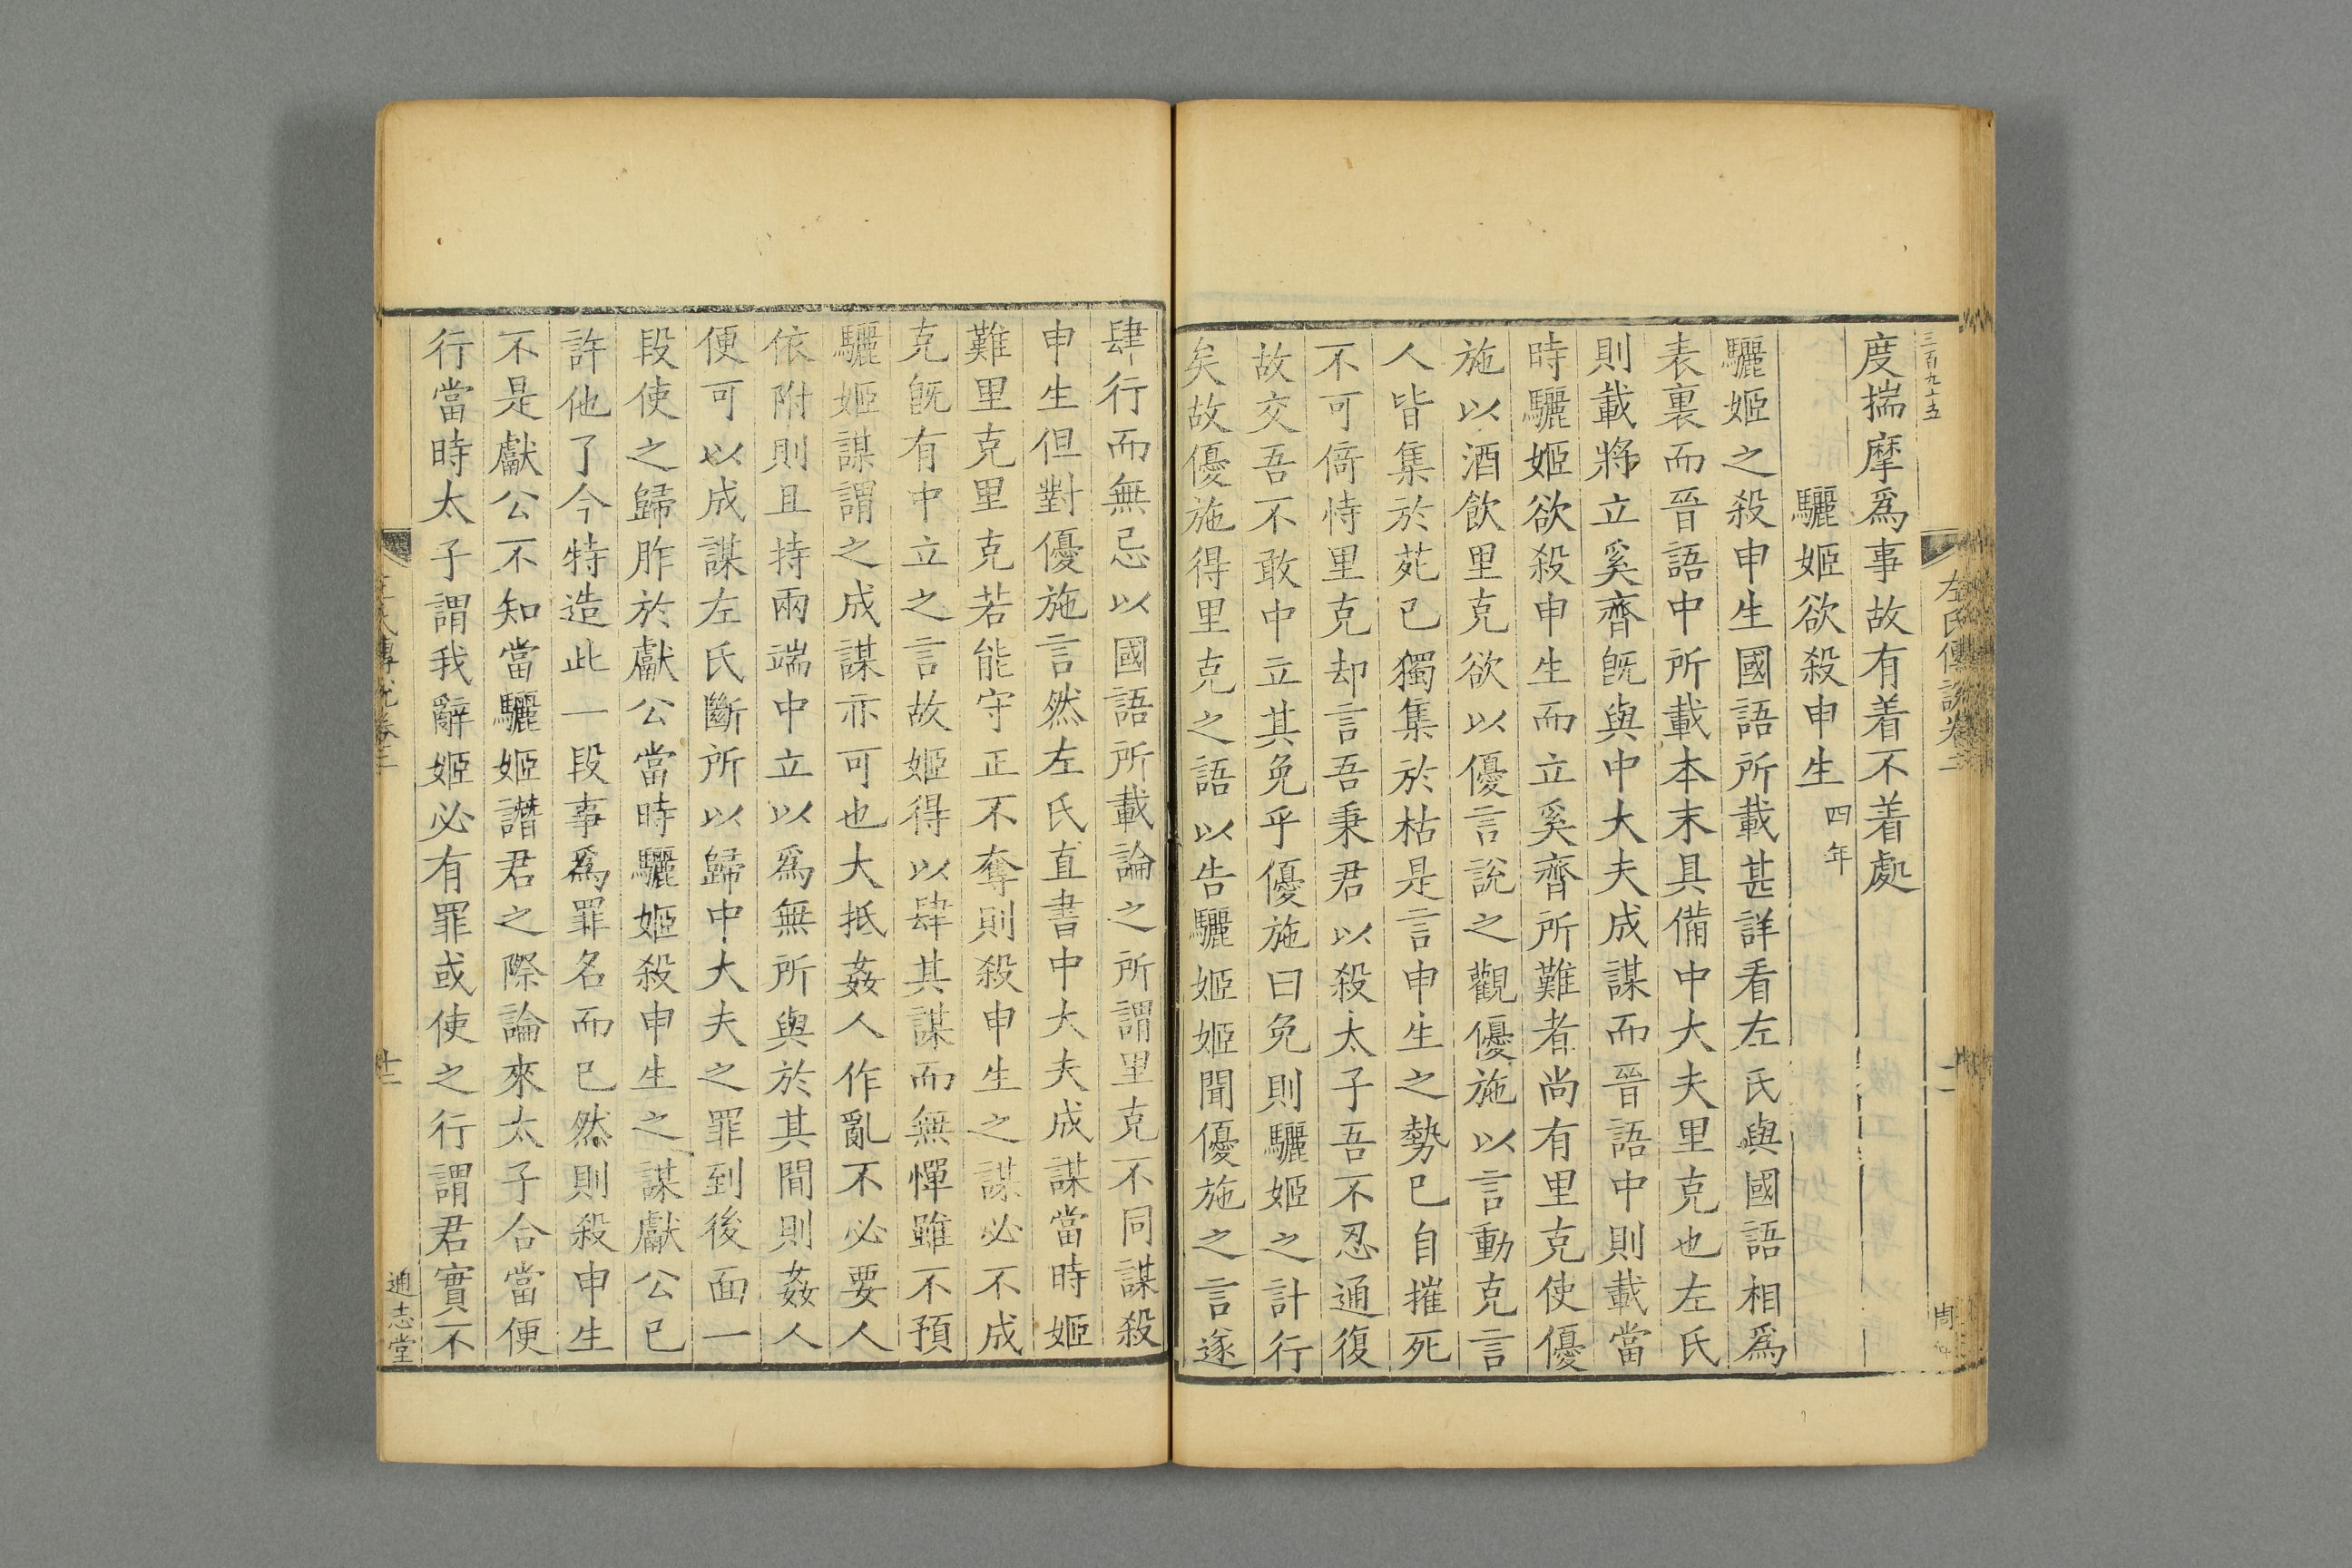 三百九十五
左氏傳說卷三
度揣摩爲事故有着不着處
驪姬欲殺申生四年
驪姬之殺申生國語所載甚詳看左氏與國語相爲
表裏而晉語中所載本末具備中大夫里克也左氏
則載將立奚齊旣與中大夫成謀而晉語中則載當
時驪姬欲殺申生而立奚齊所難者尚有里克使優
施以酒飲里克欲以優言說之觀優施以言動克言
人皆集於苑已獨集於枯是言申生之勢已自摧死
不可倚恃里克却言吾秉君以殺太子吾不忍通復
故交吾不敢中立其免乎優施曰免則驪姬之計行
矣故優施得里克之語以告驪姬姬聞優施之言遂
肆行而無忌以國語所載論之所謂里克不同謀殺
申生但對優施言然左氏直書中大夫成謀當時姬
難里克里克若能守正不奪則殺申生之謀必不成
克旣有中立之言故姬得以肆其謀而無憚雖不預
驪姬謀謂之成謀亦可也大抵姦人作亂不必要人
依附則且持兩端中立以爲無所與於其間則姦人
便可以成謀左氏斷所以歸中大夫之罪到後面一
段使之歸胙於獻公當時驪姬殺申生之謀獻公已
許他了今特造此一段事爲罪名而已然則殺申生
不是獻公不知當驪姬譖君之際論來太子合當便
行當時太子謂我辭姬必有罪或使之行謂君實不
通志堂